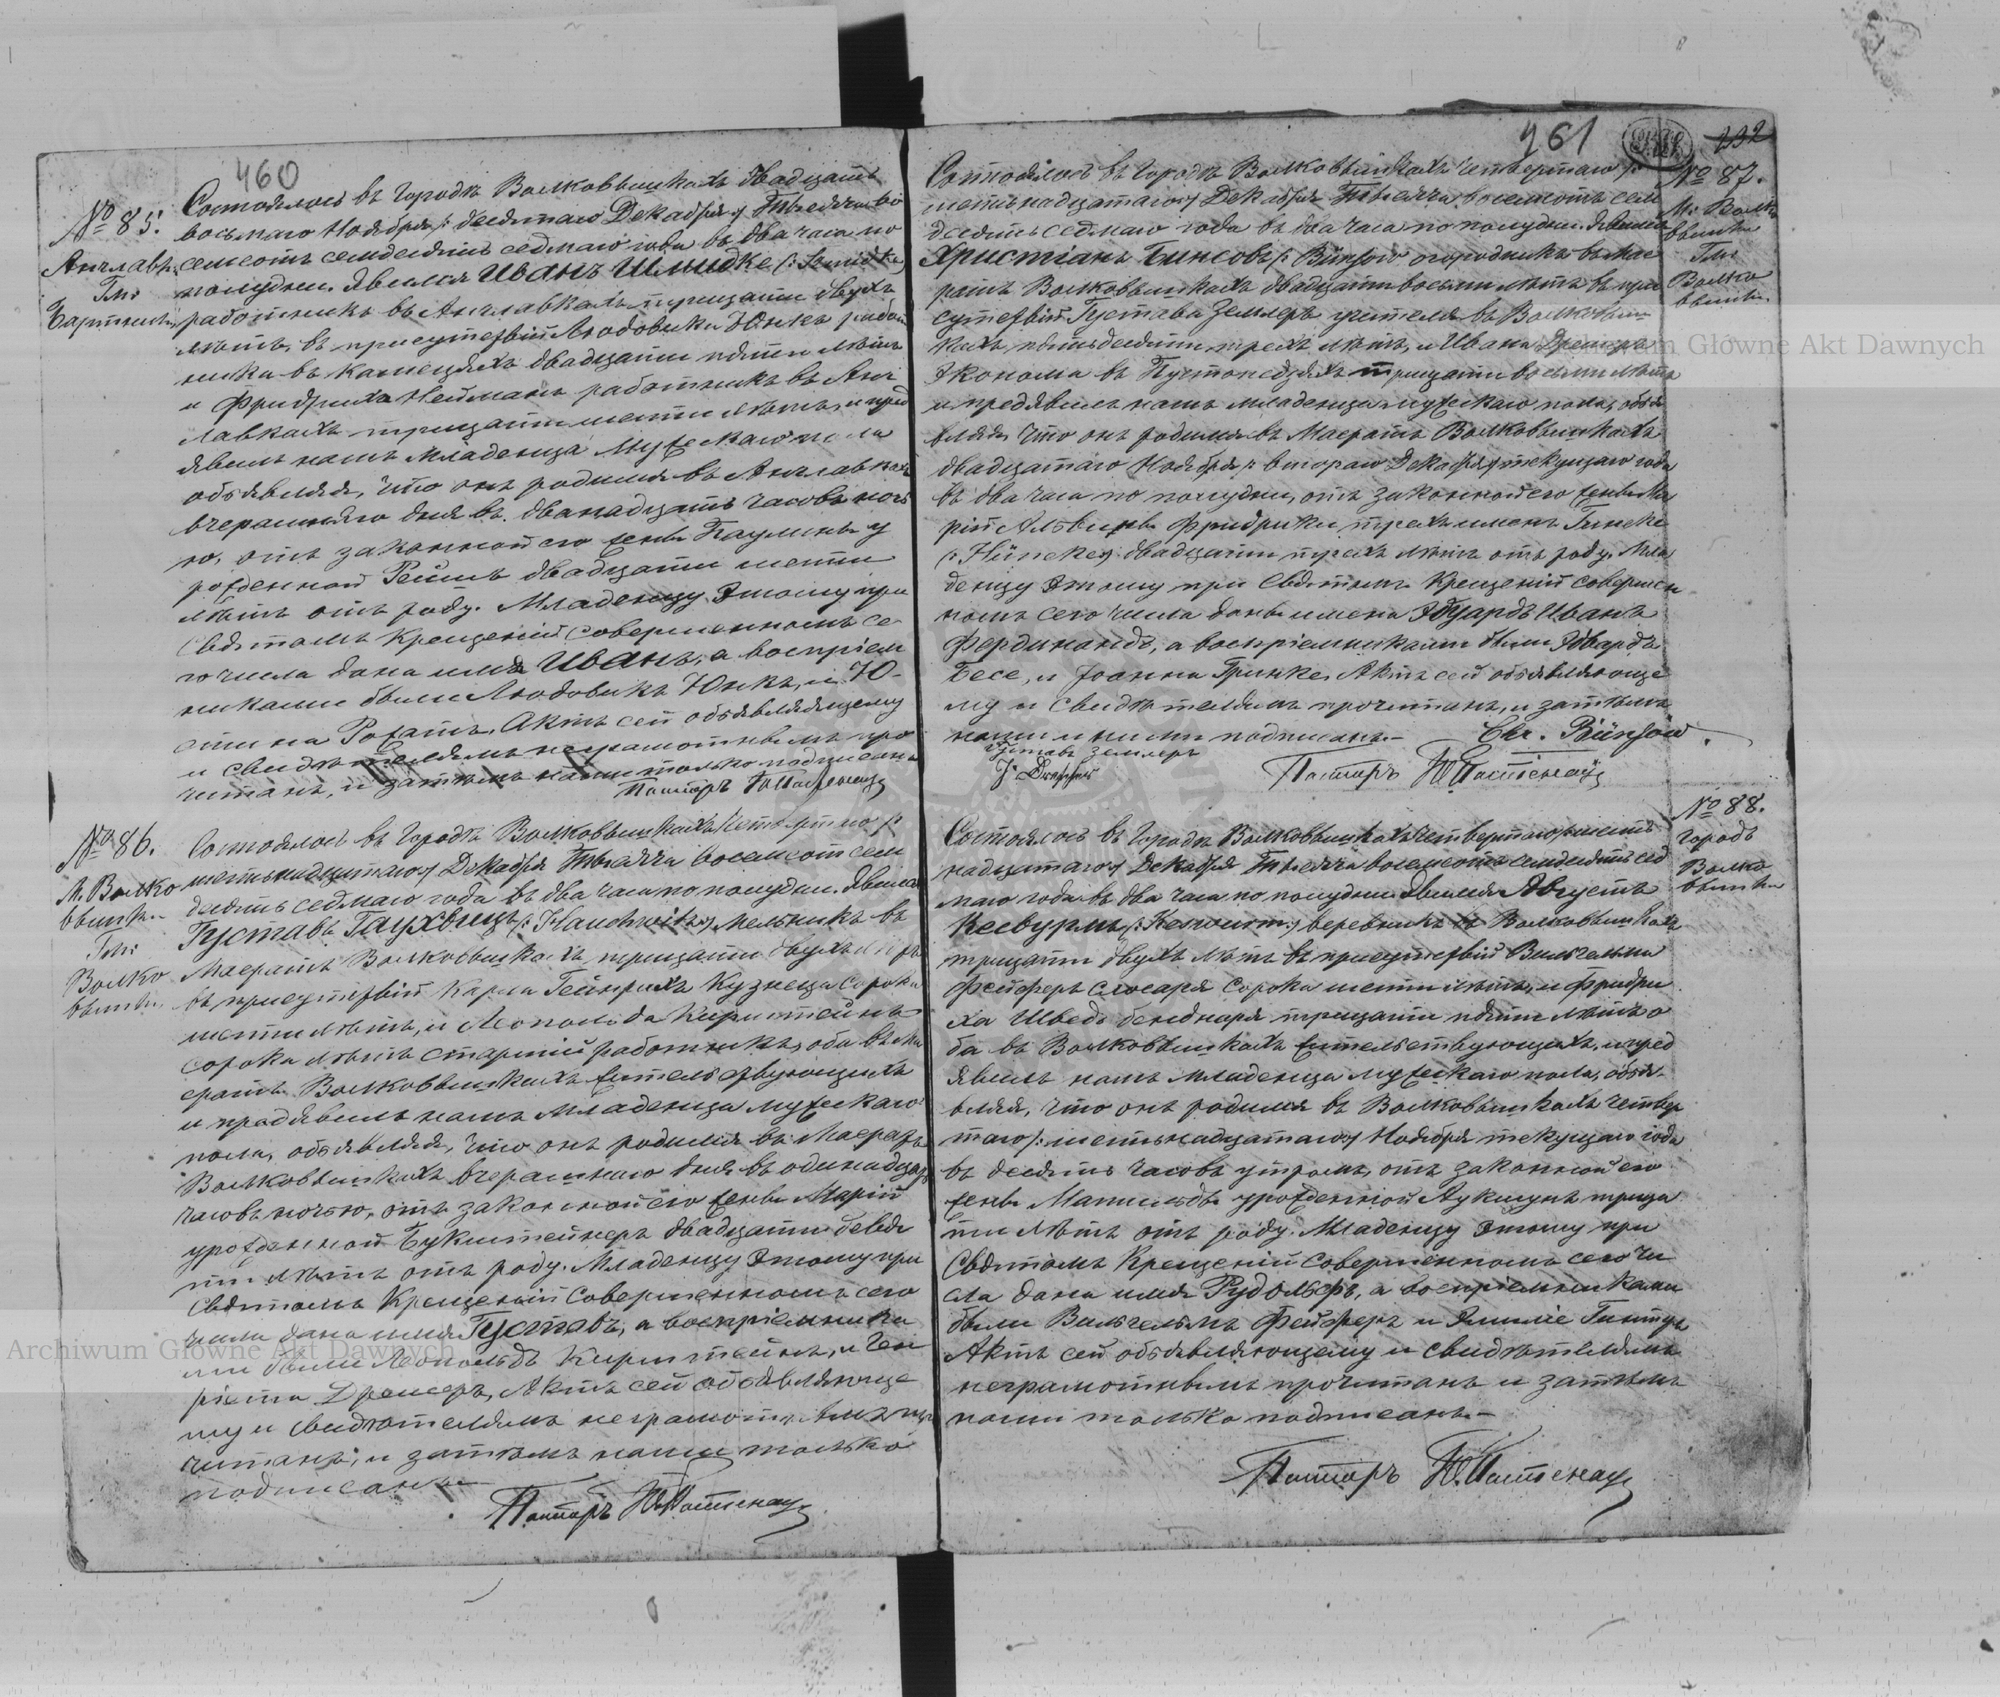 460
№ 85.
Анчлавк.
Гм:
Состоялось въ городѣ Волковышкахъ двадцать
восьмаго Ноября /: десятаго Декабря :/ тысяча во
семьсотъ семдесятъ седмаго года въ два часа по
полудни. Явился Иванъ Шмидке
работникъ въ Анчлавкахъ тридцати двухъ
лѣтъ, въ присутствіи Людовика Юнкъ работ
ника въ двадцати пяти лѣтъ
и Фридриха Нейманъ работникъ въ Анч
лавкахъ тридцати шести лѣтъ, и пред
явилъ намъ младенца мужескаго пола
объявляя, что онъ родился въ Анчлавкахъ
вчерашняго дня въ двенадцать часовъ ночь
ю, отъ законной его жены Паулины у
рожденной двадцати шести
лѣтъ отъ роду. Младенцу этому при
Святомъ Крещеніи совершенномъ се
го числа дано имя Иванъ, а воспріем
никами были Людовикъ Юнкъ, и Ю-
стина Актъ сей объявляющему
и свидѣтелямъ неграмотнымъ про
читанъ, и затѣмъ нами только подписанъ
Пасторъ
№ 86.
М. Волко
вышки
Гм:
Волко
вышки
Состоялось въ городѣ Волковышкахъ четвертаго /:
шестьнадцатаго :/ Декабря тысяча восемсотъ сем
десятъ седмаго года въ два часа по полудни. Явился
Густавъ Гаухвицъ /: Hauchwitz :/ мельникъ въ
Маератѣ Волковышкахъ тридцати двухъ лѣтъ
въ присутствіи Карла Гейнрихъ Кузнеца сорока
шести лѣтъ, и Леопольда Кирштейнъ
сорока лѣтъ старшій работникъ, оба въ Ма
ератѣ Волковышкахъ жительствующихъ
и предявилъ намъ младенца мужескаго
пола, объявляя, что онъ родился въ Маератѣ
Волковышкахъ вчерашняго дня въ одинадцать
часовъ ночью, отъ законной его жены Маріи
урожденной Букштейнеръ двадцати девя
ти лѣтъ отъ роду. Младенцу этому при
Святомъ Крещеніи совершенномъ сего
числа дано имя Густавъ, а воспріемника
ми были Леопольдъ Кирштейнъ, и Ген
ріета Актъ сей объявляюще
му и свидѣтелямъ неграмотнымъ про
читанъ, и затѣмъ нами только
подписанъ
Пасторъ
461
232
№ 87.
М: Волко
вышки
Гм:
Волко
вышки
Состоялось въ городѣ Волковышкахъ четвертаго /:
шестьнадцатаго :/ Декабря тысяча восемсотъ сем
десятъ седмаго года въ два часа по полудни. Явился
Христіанъ Бинсовъ /: Bünsow огородникъ въ Мае
ратѣ Волковышкахъ двадцати восьми лѣтъ въ при
сутствіи Густава Землеръ учителя въ Волковыш
кахъ, пятьдесяти трехъ лѣтъ, и Ивана
Эконома въ тридцати восьми лѣтъ
и предявилъ намъ младенца мужескаго пола, объя
вляя, что онъ родился въ Маератѣ Волковышкахъ
двадцатаго Ноября /: втораго Декабря :/ текущаго года
въ два часа по полудни, отъ законной его жены Ма
ріи Альвины Фридрики трехъ именъ Гинске
/: Hünske :/ двадцати трехъ лѣтъ отъ роду. Мла
денцу этому при Святомъ Крещеніи совершен
номъ сего числа даны имена Эдуардъ Иванъ
Фердинандъ, а воспріемниками были Эдвардъ
Бесе, и Іоанна Гринке. Актъ сей объявляюще
му и свидѣтелямъ прочитанъ, и затѣмъ
нами и ними подписанъ.- Chr. Bünsow.
Густавъ Землеръ
Пасторъ
№ 88.
Городъ
Волко
вышки
Состоялось въ городѣ Волковышкахъ четвертаго /: шесть
надцатаго :/ Декабря тысяча восемсотъ семдесятъ сед
маго года въ два часа по полудни. Явился Августъ
Кесвурмъ /: Keswurm :/ веревникъ въ Волковышкахъ
тридцати двухъ лѣтъ въ присутствіи Вильгельма
Фейферъ слесаря сорока шести лѣтъ, и Фридри
ха Шведъ беднаря тридцати пяти лѣтъ о
ба въ Волковышкахъ жительствующихъ, и пред
явилъ намъ младенца мужескаго пола, объя-
вляя, что онъ родился въ Волковышкахъ четвер
таго /: шестьнадцатаго :/ Ноября текущаго года
въ десять часовъ утромъ, отъ законной его
жены Матильды урожденной тридца
ти лѣтъ отъ роду. Младенцу этому при
Святомъ Крещеніи совершенномъ сего чи
сла дано имя Рудольфъ, а воспріемниками
были Вильгельмъ Фейферъ и Эмилie
Актъ сей объявляющему и свидѣтелямъ
неграмотнымъ прочитанъ и затѣмъ
нами только подписанъ.-
Пасторъ
Archiwum Główne Akt Dawnych
Archiwum Główne Akt Dawnych